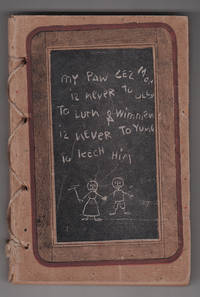 my PAW CEZ MON
iz never to OLD
To Lurn & Wimmen
iz never To Yung
To Teech Him